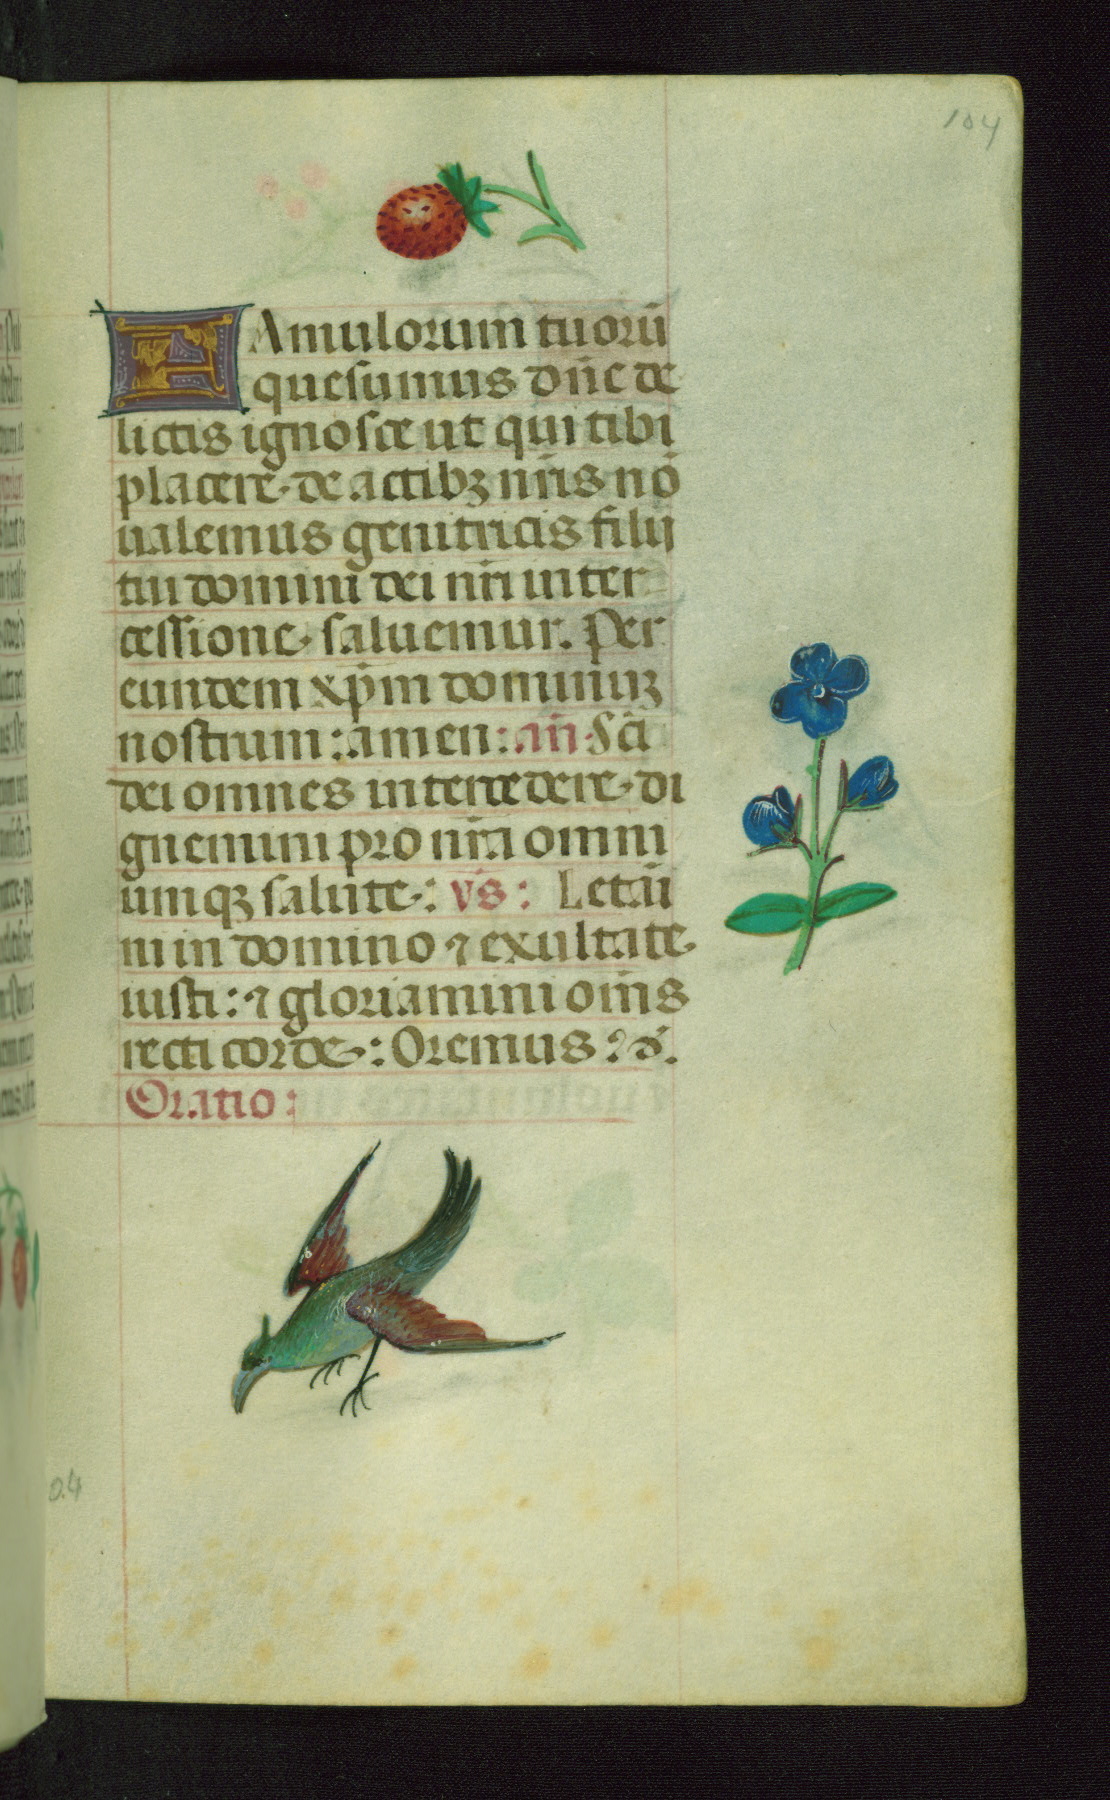 104
FAmulorum tuorū
quesumus dn̄e de
lictis ignosce ut qui tibi
placere de actibꝫ nr̄is nō
ualemus genitricis filij
tui domini dei nr̄i inter
cessione saluemur. Per
eundem xp̄m dominuꝫ
nostrum: amen: an̄. Sc̄i
dei omnes intercedere di
gnemini pro nr̄a omni
umqꝫ salute: vs: Letam̄
ni in domino ⁊ exultate
iusti: ⁊ gloriamini om̄s
recti corde: Oremus:
Oratio: